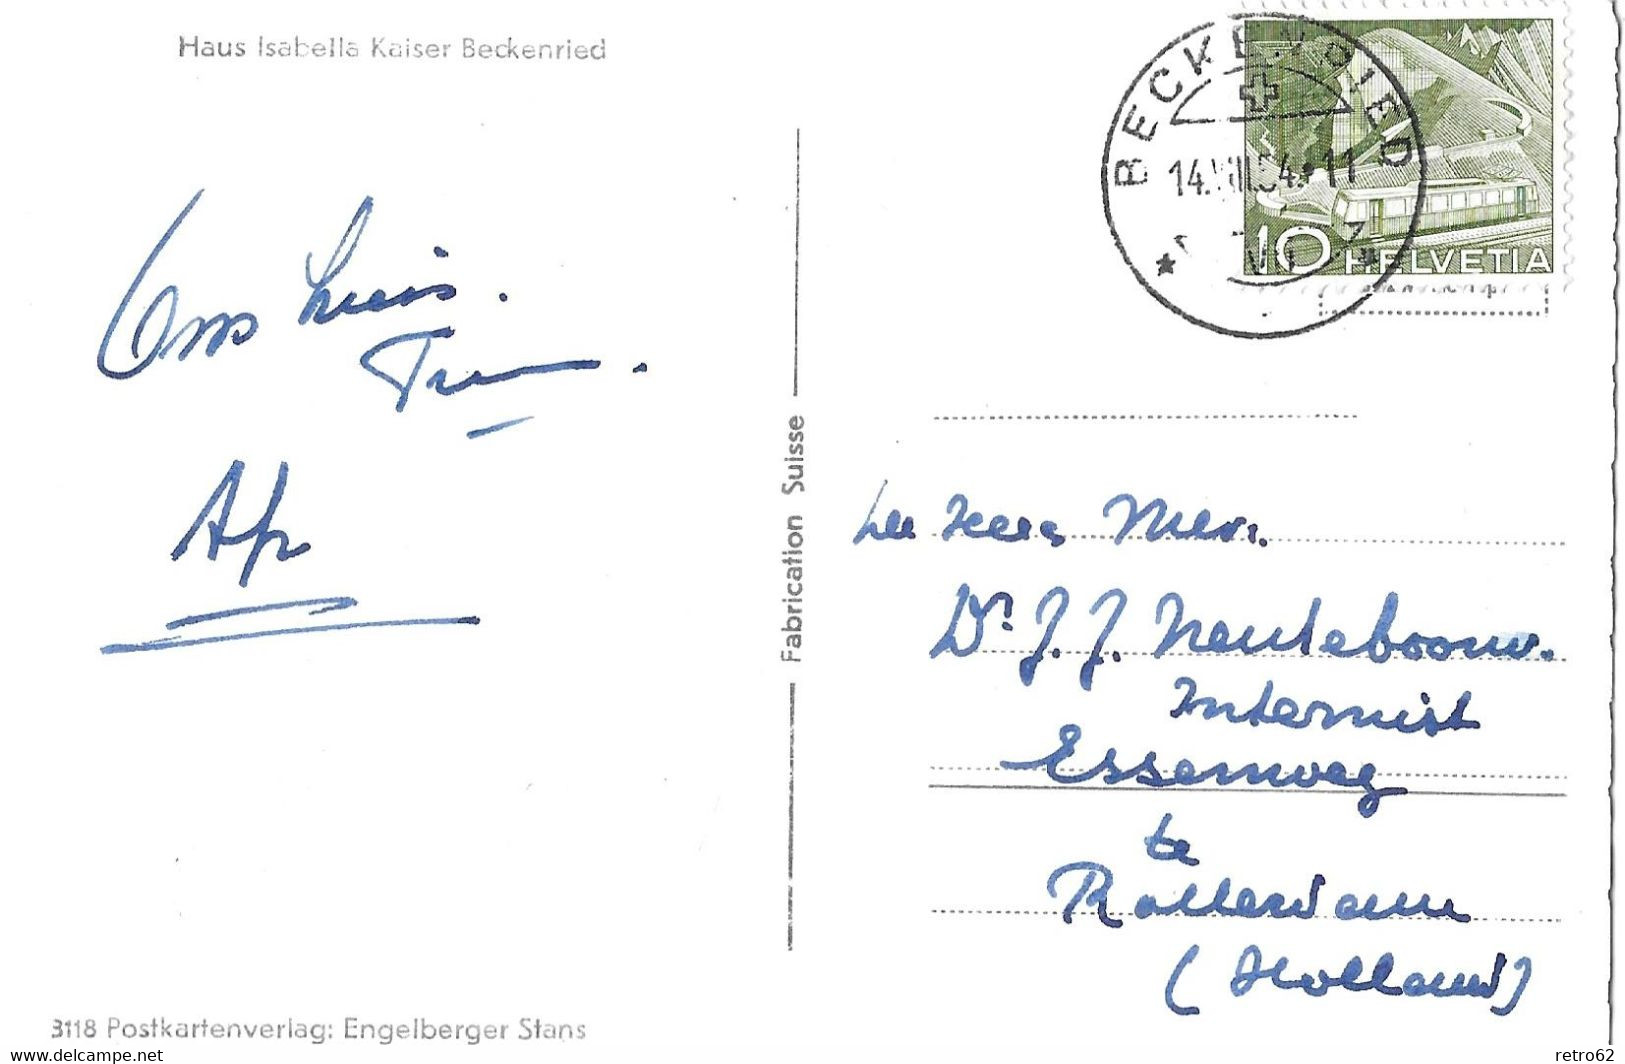 Haus Isabella Kaiser Beckenried
BECKENRIED
14.VIII.54.*11
10 HELVETIA
Ons huis.
Fabrication Suisse
Heer
Dr. J. J. Neuteboom.
Internist
Essenweg
te
Rotterdam
(Holland)
3118 Postkartenverlag: Engelberger Stans
www.delcampe.net
retro62